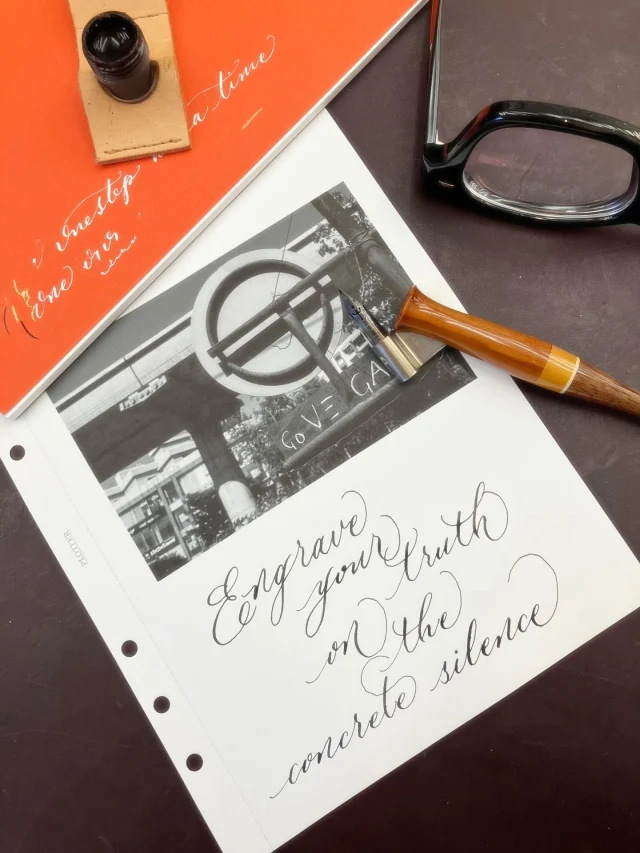 onestep a time
one
GO VE GA
PLOTTER
Engrave
your truth
on the
concrete silence